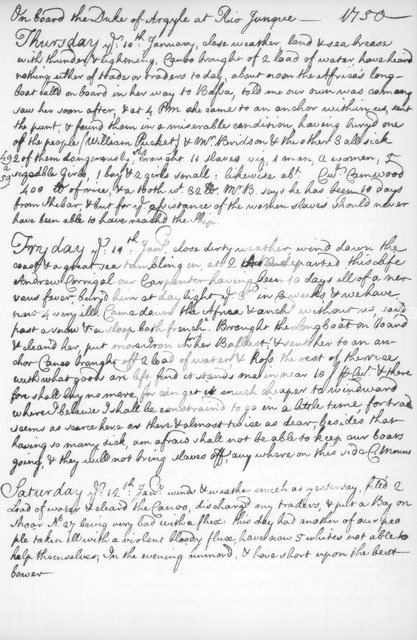 On board the Duke of Argyle at Rio Junque — 1750
Thursday ye. 10th January, close weather, land & sea breese
with thunder & lightening. Canoo brought off 2 load of water have heard
nothing either of trade or traders to day, about noon the Africa's long-
boat calld on board in her way to Bassa, told me our own was coming
saw her soon after, & at 4 PM she came to an anchor within us, sent
the punt, & found them in a miserable condition, having buryed one
of the people (William Pucket) & Mr. Bridson & the other 3 all sick
2 of them dangerously, brought 11 slaves viz 1 man, 2 women, 5
sizeable Girls, 1 boy & 2 girls small: likewise abt. Cwt. Camwood
400 lb of rice, & a tooth wt. 32 lb. Mr. B. says he has been 10 days
from Shebar & but for ye assistance of the women slaves should never
have been able to have reached the ship.
49
59
Fryday ye. 11th Janry. close dirty weather, wind down the
coast & a great sea tumbling in, at 2 departed this life
Andrew Corrigal our Carpenter, having been 10 days ill of a ner-
vous fever, buryd him at day light, ye 3d in 3 weeks & we have
now 4 very ill. Came down the Africa & anchd without us, said
past a snow & a sloop both french. Brought the Longboat on board
& cleand her, put more Iron in her Ballast, & sent her to an an-
chor Canoo brought off 2 load of water & the rest of the rice,
with what goods are left, find it stands me in near 10 / Cwt. & there
fore shall buy no more, for can get it much cheaper to windward
where I believe I shall be constraind to go in a little time, for trade
seems as scarce here as there & almost twice as dear. Besides that
having so many sick, am afraid shall not be able to keep our boats
going, & they will not bring slaves off any where on this side C: Mount
Saturday ye. 12th. Janry. winds & weather much as yesterday, filed 2
Load of water & cleard the Canoo, dischargd my traders, & put a Boy on
shoar No. 27 being very bad with a flux. this day had another of our peo
ple taken ill with a violent bloody flux, have now 5 whites not able to
help themselves; In the evening unmoord, & have short upon the best
bower